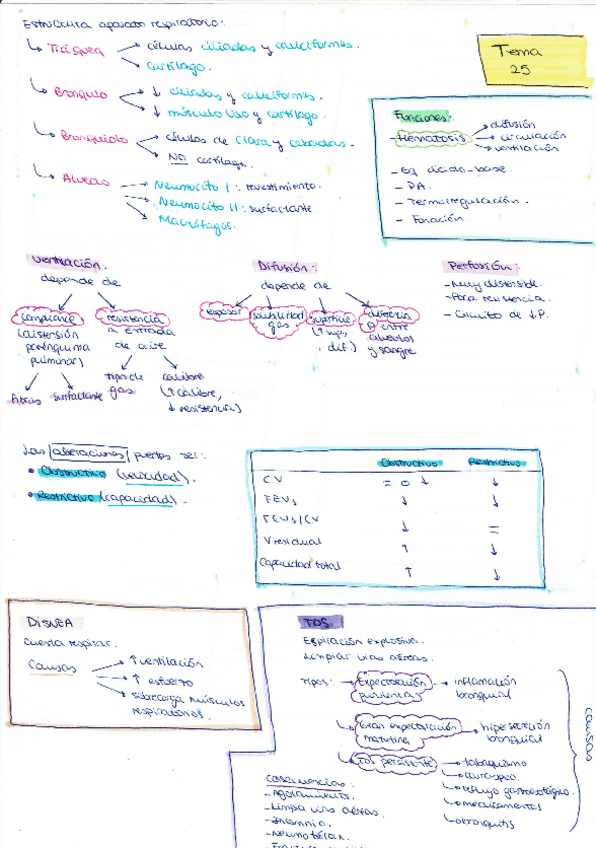 Estructura aparato respiratorio:
Tráquea → células ciliadas y caliciformes.
→ cartílago.
Bronquio → ↓ ciliadas y caliciformes.
↓ músculo liso y cartílago.
Bronquiolo → células de Clara y cebadas.
NO cartílago.
Alveolo → Neumocito I: revestimiento.
Neumocito II: surfactante
Macrófagos.
Tema
25
Funciones:
- Hematosis → difusión
→ circulación
→ ventilación
- Eq ácido-base.
- PA.
- Termorregulación.
- Fonación.
Ventilación:
depende de
compliance
(distensión
parénquima
pulmonar)
fibras surfactante
resistencia
a entrada
de aire
tipo de
gas
calibre
(↑ calibre,
↓ resistencia)
Difusión:
depende de
espesor
solubilidad
gas
superficie
(↑ sup,
dif.)
diferencia
P entre
alveolos
y sangre
Perfusión:
- Muy distensible.
- Poca resistencia.
- Circuito de ↓P.
Las alteraciones pueden ser:
• Obstructivo (velocidad).
• Restrictivo (capacidad).
Obstructivo Restrictivo
CV = o ↓ ↓
FEV₁ ↓ ↓
FEV₁/CV ↓ =
V residual ↑ ↓
Capacidad total ↑ ↓
DISNEA
Cuesta respirar.
Causas → ↑ ventilación
→ ↑ esfuerzo
→ sobrecarga músculos
respiratorios.
TOS
Espiración explosiva.
Limpiar vías aéreas.
Tipos: → Expectoración
purulenta → inflamación
bronquial
Gran expectoración
matutina → hipersecreción
bronquial
Tos persistente → tabaquismo
→ reflujo gastroesofágico.
→ medicamentos
→ bronquitis
causas
Consecuencias:
- Agotamiento.
- Limpia vías aéreas.
- Insomnio.
- Neumotórax.